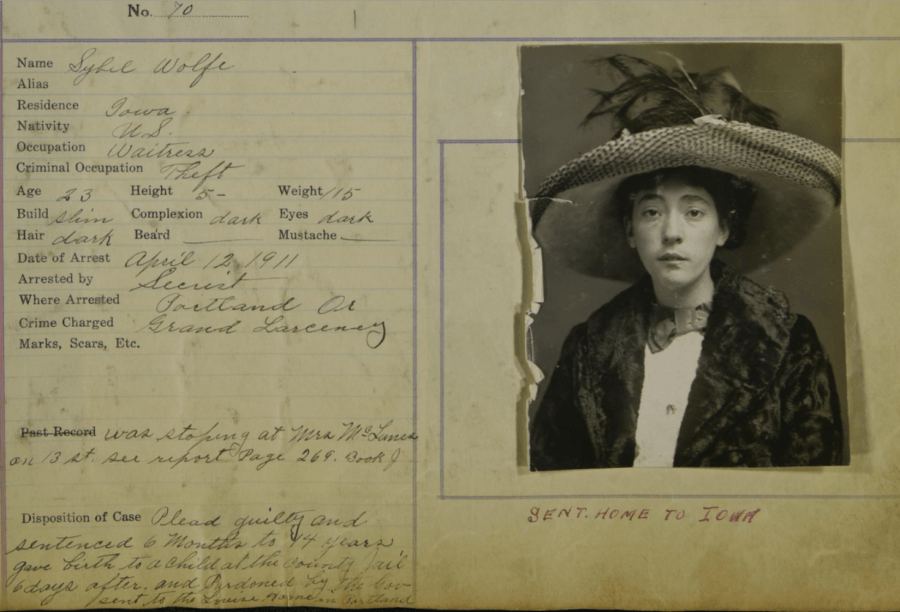 No. 70
Name Sybil Wolfe
Alias
Residence Iowa
Nativity U.S.
Occupation Waitress
Criminal Occupation Theft
Age 23 Height 5- Weight 115
Build slim Complexion dark Eyes dark
Hair dark Beard — Mustache —
Date of Arrest April 12, 1911
Arrested by Secrist
Where Arrested Portland Or
Crime Charged Grand Larceney
Marks, Scars, Etc.
Past Record was stoping at Mrs
on 13 st. see report Page 269. Book J
Disposition of Case Plead guilty and
sentenced 6 Months to 14 years
gave birth to a child at the county jail
6 days after. and Pardoned by the Gov-
sent to the Louise Home in Portland
SENT. HOME TO IOWA